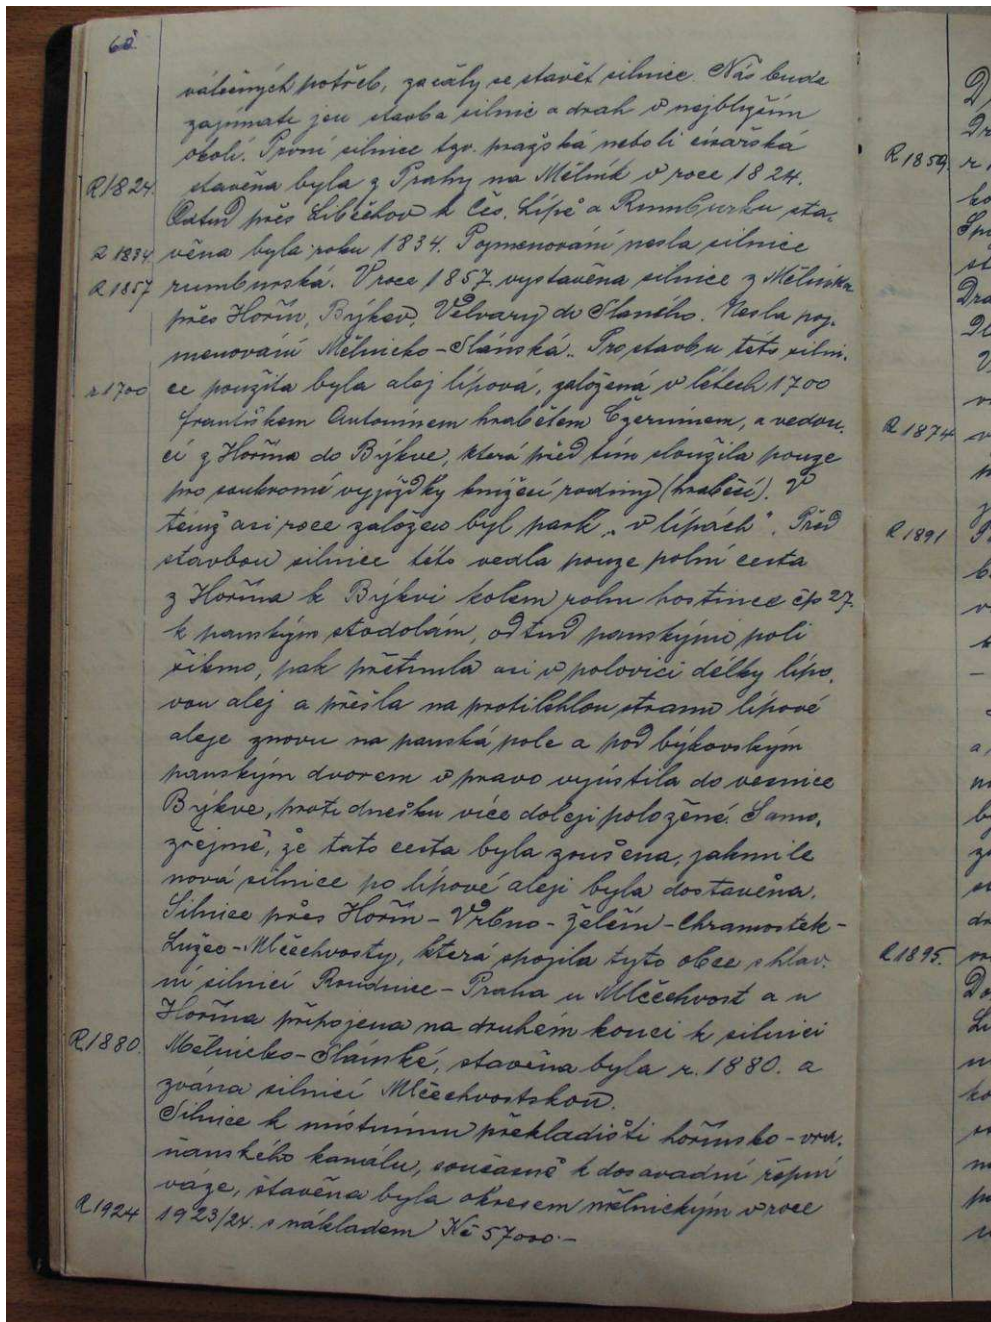 60.
válečných potřeb, začaly se stavět silnice. Nás bude
zajímati jen stavba silnic a drah v nejbližším
okolí. První silnice zv. pražská neboli císařská
R 1824. stavěna byla z Prahy na Mělník v roce 1824.
Odtud přes Liběchov k Čes. Lípě a Rumburku sta-
R 1834 věna byla roku 1834. Pojmenování nesla silnice
R 1857 rumburská. V roce 1857 vystavěna silnice z Mělníka
přes Hořín, Býkev, Velvary do Slaného. Nesla poj-
menování Mělnicko-Slánská. Pro stavbu této silni-
r 1700 ce použita byla alej lípová, založená v létech 1700
Františkem Antonínem hrabětem Czernínem, a vedou-
cí z Hořína do Býkve, která před tím sloužila pouze
pro soukromé vyjížďky knížecí rodiny (hraběcí). V
témž asi roce založen byl park „v lípách". Před
stavbou silnice této vedla pouze polní cesta
z Hořína k Býkvi kolem rohu hostince čp 27.
k panským stodolám, odtud panskými poli
šikmo, pak přetnula asi v polovici délky lípo-
vou alej a přešla na protilehlou stranu lípové
aleje znovu na panská pole a pod býkovským
panským dvorem v pravo vyústila do vesnice
Býkve, proti dnešku více doleji položené. Samo-
zřejmě, že tato cesta byla zrušena, jakmile
nová silnice po lípové aleji byla dostavěna.
Silnice přes Hořín - Vrbno - Zelčín - Chramostek -
Lužec - Mlčechvosty, která spojila tyto obce s hlav-
ní silnicí Roudnice - Praha u Mlčechvost a u
Hořína připojena na druhém konci k silnici
R 1880. Mělnicko-Slánské, stavěna byla r. 1880. a
zvána silnicí Mlčechvostskou.
Silnice k místnímu překladišti hořínsko - vra-
ňanského kanálu, současně k dosavadní řepní
váze, stavěna byla okresem mělnickým v roce
R 1924 1923/24. s nákladem Kč 57000.-
R 1859
R 1874
R 1891
R 1895.